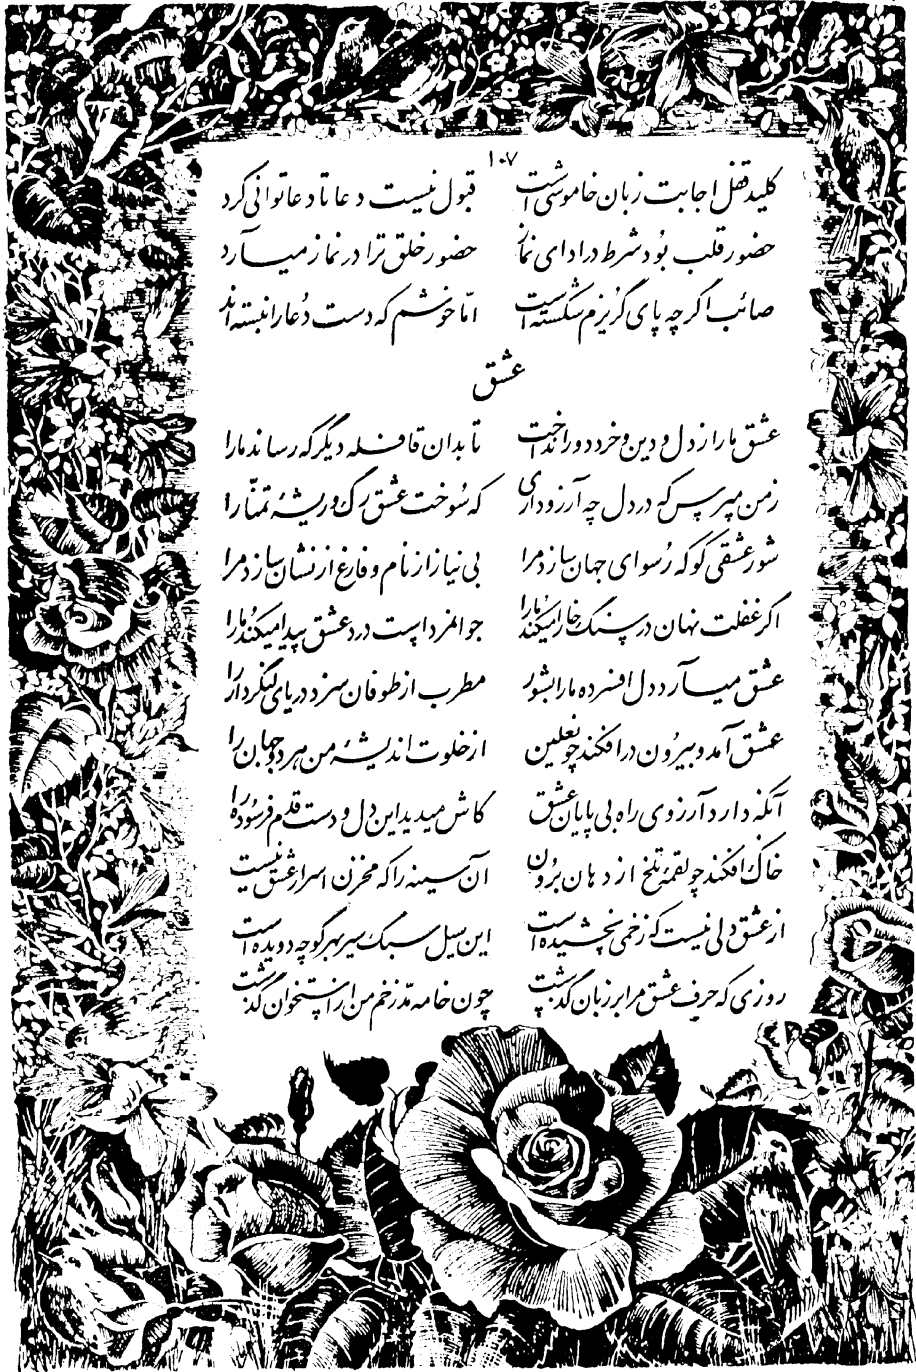 ۱۰۷
کلید قفل اجابت زبان خاموشی است قبول نیست دعا تا دعا توانی کرد
حضور قلب بُود شرط در ادای نماز حضور خلق ترا در نماز میآرد
صائب اگرچه پای گریزم شکسته است امّا خوشم که دست دُعا را نبسته اند
عشق
عشق ما را از دل و دین و خرد دور انداخت تا بدان قافله دیگر که رساند ما را
ز من مپرس که در دل چه آرزو داری که سُوخت عشق رگ و ریشهٔ تمنّا را
شور عشقی کو که رُسوای جهان سازد مرا بی نیاز از نام و فارغ از نشان سازد مرا
اگر غفلت نهان در سنگ خارا میکند ما را جوانمرد است درد عشق پیدا میکند ما را
عشق میآرد دل افسرده ما را بشور مطرب از طوفان سزد دریای لنگردار را
عشق آمد و بیرُون در افکند چو نعلین از خلوت اندیشهٔ من هر دو جهان را
آنکه دارد آرزوی راه بی پایان عشق کاش میدید این دل و دست قلم فرسُوده را
خاک افکند چو لقمهٔ تلخ از دهان بُرون آن سینه را که مخزن اسرار عشق نیست
از عشق دلی نیست که زخمی نچشیده است این سیل سبک سیر بهر کوچه دویده است
روزی که حرف عشق مرا بر زبان گذشت چون خامه مدّ زخم من از استخوان گذشت